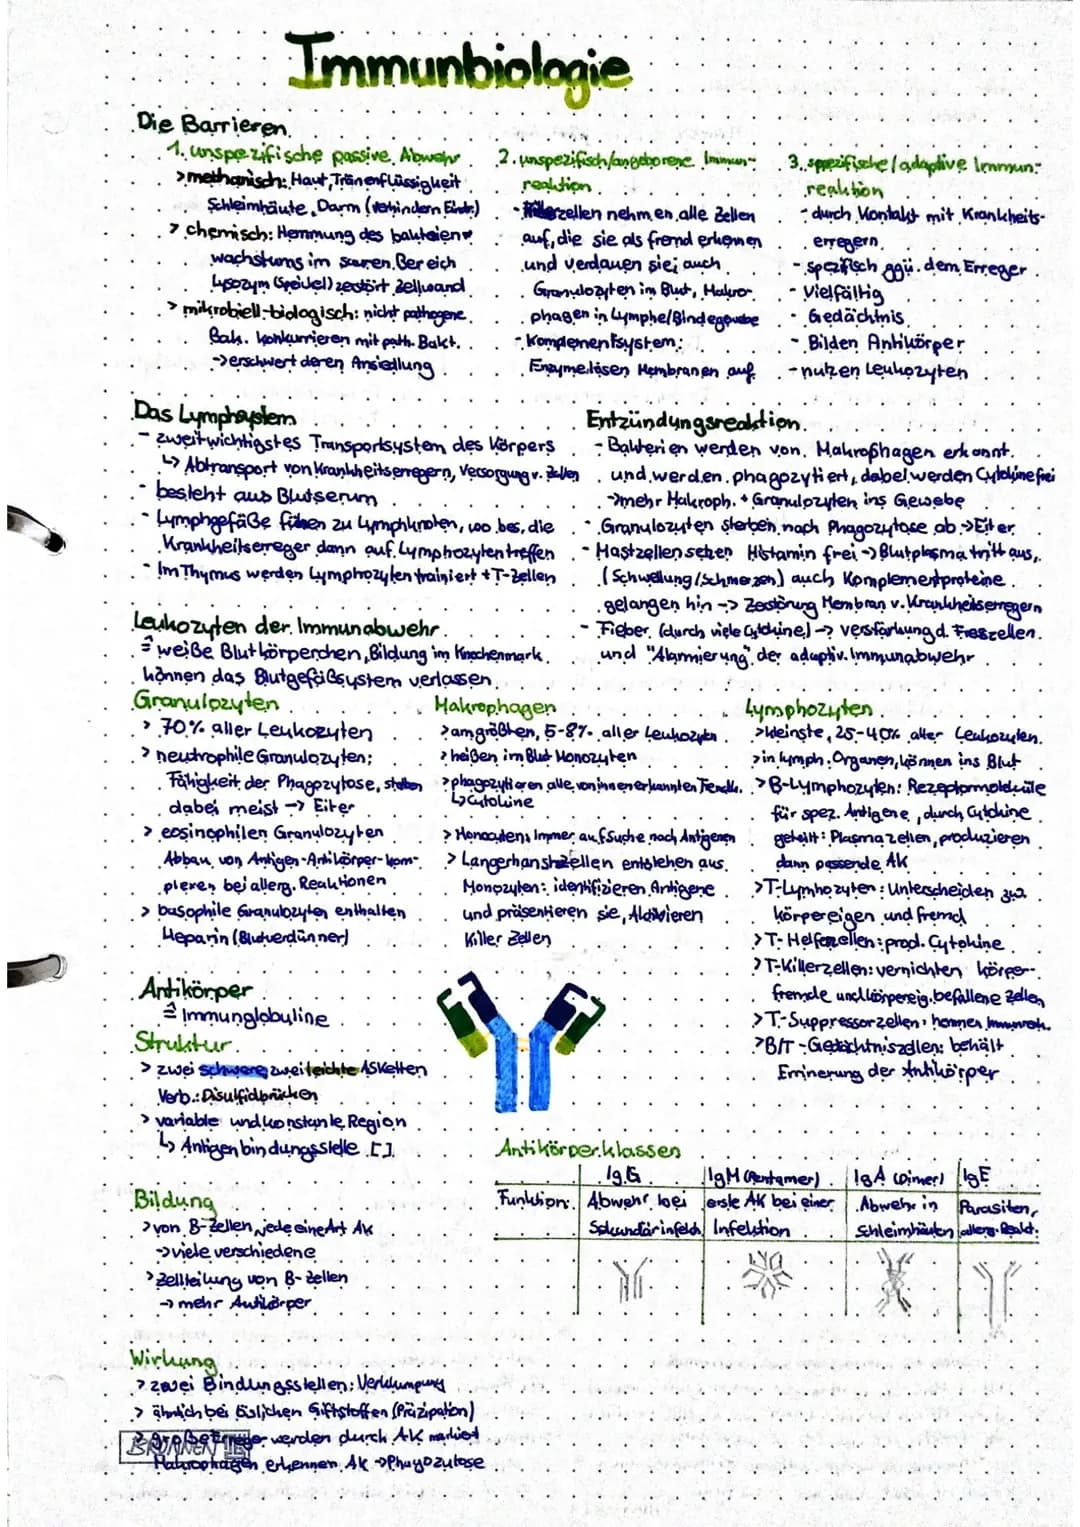 Immunbiologie
Die Barrieren
1. unspezifische passive Abwehr
>methanisch: Haut, Tränenflüssigkeit
Schleimhäute, Darm (verhindern Eindr.)
> chemisch: Hemmung des bakteien
wachstums im sauren Bereich
Lysozym (Speichel) zerstört Zellwand
> mikrobiell-biologisch: nicht pathogene
Bak. konkurrieren mit path. Bakt.
->erschwert deren Ansiedlung
2. unspezifisch/angeborene Immun-
reaktion
zellen nehmen alle Zellen
auf, die sie als fremd erkennen
und verdauen sie; auch
Granulozyten im Blut, Makro-
phagen in Lymphe/Bindegewebe
- Komplementsystem:
Enzyme lösen Membranen auf
3. spezifische/adaptive Immun-
reaktion
- durch Kontakt mit Krankheits-
erregern
- spezifisch ggü. dem Erreger
- Vielfältig
- Gedächtnis
- Bilden Antikörper
- nutzen Leukozyten
Das Lymphsystem
- zweitwichtigstes Transportsystem des Körpers
↳ Abtransport von Krankheitserregern, Versorgung v. Zellen
- besteht aus Blutserum
- Lymphgefäße führen zu Lymphknoten, wo bes. die
Krankheitserreger dann auf Lymphozyten treffen
- Im Thymus werden Lymphozyten trainiert + T-Zellen
Entzündungsreaktion
- Bakterien werden von Makrophagen erkannt
und werden phagozytiert, dabei werden Cytokine frei
->mehr Makroph. + Granulozyten ins Gewebe
- Granulozyten sterben nach Phagozytose ab -> Eiter
- Mastzellen setzen Histamin frei -> Blutplasma tritt aus,
(Schwellung/Schmerzen) auch Komplementproteine
gelangen hin -> Zerstörung Membran v. Krankheitserregern
- Fieber (durch viele Cytokine) -> verstärkung d. Fresszellen
und "Alarmierung" der adaptiv. Immunabwehr
Leukozyten der Immunabwehr
≙ weiße Blutkörperchen, Bildung im Knochenmark
können das Blutgefäßsystem verlassen
Granulozyten
> 70% aller Leukozyten
> neutrophile Granulozyten:
Fähigkeit der Phagozytose, sterben
dabei meist -> Eiter
> eosinophilen Granulozyten
Abbau von Antigen-Antikörper-kom-
plexen bei allerg. Reaktionen
> basophile Granulozyten enthalten
Heparin (Blutverdünner)
Makrophagen
> am größten, 5-8% aller Leukozyten
> heißen im Blut Monozyten
> phagozytieren alle von ihnen erkannten Fremdk.
↳ Cytokine
> Monocyten: Immer auf Suche nach Antigenen
> Langerhanszellen entstehen aus
Monozyten: identifizieren Antigene
und präsentieren sie, Aktivieren
Killer Zellen
Lymphozyten
> kleinste, 25-40% aller Leukozyten
> in lymph. Organen, können ins Blut
> B-Lymphozyten: Rezeptormoleküle
für spez. Antigene, durch Cytokine
geteilt: Plasmazellen, produzieren
dann passende AK
> T-Lymhozyten: Unterscheiden zw.
körpereigen und fremd
> T-Helferzellen: prod. Cytokine
> T-Killerzellen: vernichten körper-
fremde und körpereig. befallene Zellen
> T-Suppressorzellen: hemmen Immunreak.
> B/T-Gedächtniszellen: behält
Errinerung der Antikörper
Antikörper
≙ Immunglobuline
Struktur
> zwei schwere, zwei leichte ASKetten
Verb.: Disulfidbrücken
> variable und konstante Region
↳ Antigenbindungsstelle [ ]
Bildung
> von B-Zellen, jede eine Art AK
-> viele verschiedene
> Zellteilung von B-Zellen
-> mehr Antikörper
Antikörperklassen
IgG IgM (Pentamer) IgA (Dimer) IgE
Funktion: Abwehr bei erste AK bei einer Abwehr in Parasiten,
Sekundärinfekt. Infektion Schleimhäuten allerg. Reakt.
Wirkung
> zwei Bindungsstellen: Verklumpung
> ähnlich bei löslichen Giftstoffen (Präzipation)
> große Erreger werden durch AK markiert
BRUNNEN
Makrophagen erkennen AK -> Phagozytose